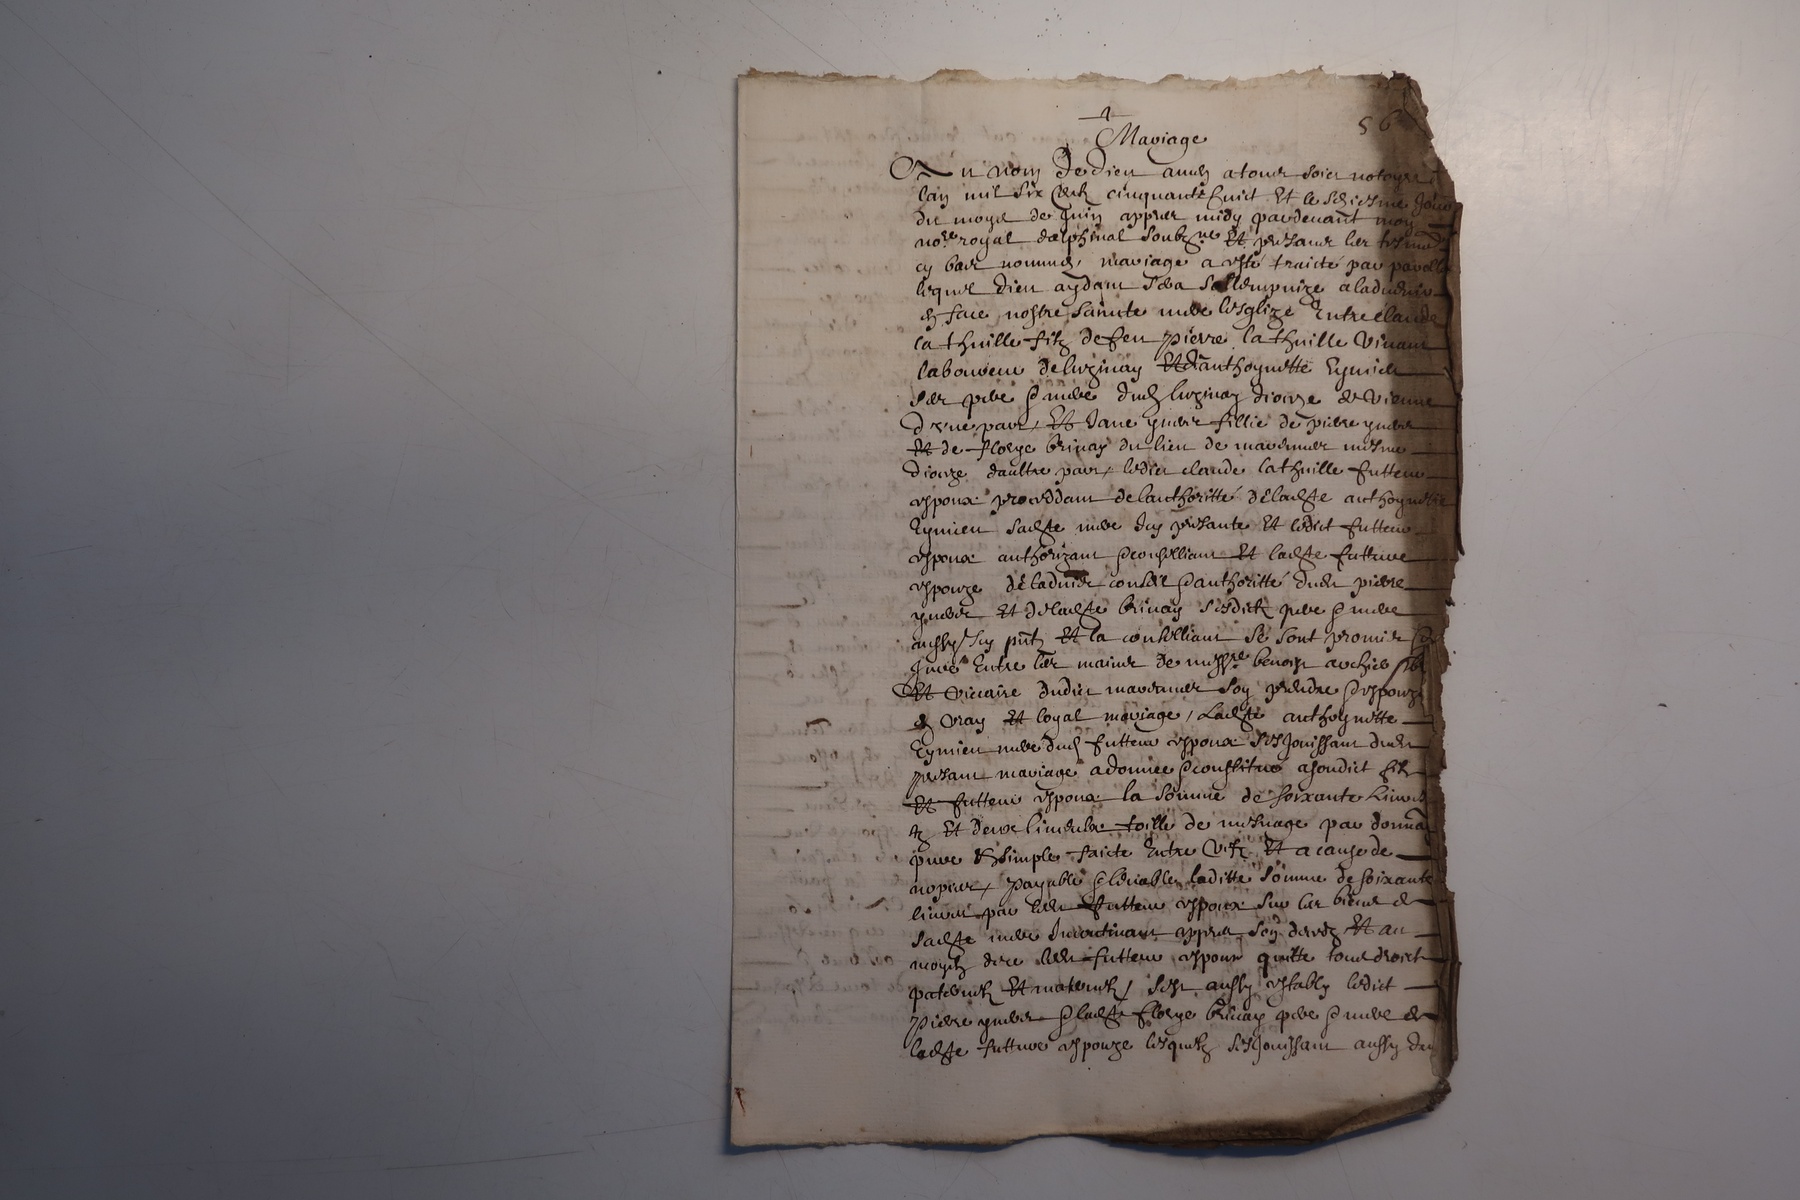 56
Mariage
Au nom de Dieu amen a tous soict notoyre
lan mil six cent cinquante huict Et le seiziesme Jour
du moys de Juin appres midy pardevant moy
no.re royal dalphinal soubz.ne Et presans les tesmoingz
cy bas nommes, mariage a esté traicté par parolle
lequel Dieu aydant sera sollempnize aladvenir
en face nostre sainte mere lesglize Entre claude
lathuille filz de feu pierre lathuille vivant
laboureur de luzinay Et danthoynette Eymien
ses pere & mere dud luzinay dioceze de vienne
d'une part, Et Jane ymber fillie de pierre ymber
Et de florye brinay du lieu de marennes mesme
dioceze daultre part, ledict claude lathuille futteur
espoux proceddam de lauthoritté de ladte anthoynette
Eymien sadte mere Icy presante Et ledict futteur
espoux authorizant & conseilliant Et ladte futture
espouze de ladvis conseil & authoritté dudit pierre
ymber Et de ladte brinay sesdictz pere & mere
aussy Icy pntz Et la conseilliant se sont promis &
Juré Entre les mains de messre benoist archier
Et viccaire dudict marennes soy prendre & espouzer
en vray Et loyal mariage, Ladte anthoynette
Eymien mere dud futteur espoux sesjouissant dudit
presant mariage a donnée & constitue a sondict filz
Et futteur espoux la somme de soixante Livres
tz Et deux linceulx toille de mesnage par donnaon
pure & simple faicte Entre vifz Et a cause de
nopces, payable & levable laditte somme de soixante
livres par ledit futteur espoux sur les biens de
sadte mere Incontinant appres son decedz Et au
moyen dece ledit futteur espoux quitte tous droict
paternelz Et maternelz, sest aussy estably ledict
Pierre ymber & ladte florye brinay pere & mere de
ladte futture espouze lesquelz sesjouissant aussy dud